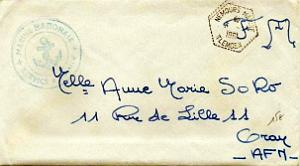 MARINE NATIONALE
SERVICE
NEMOURS
TLEMCEN
F M
Melle Anne Marie SORO
11 Rue de Lille 11
Oran
- AFN -